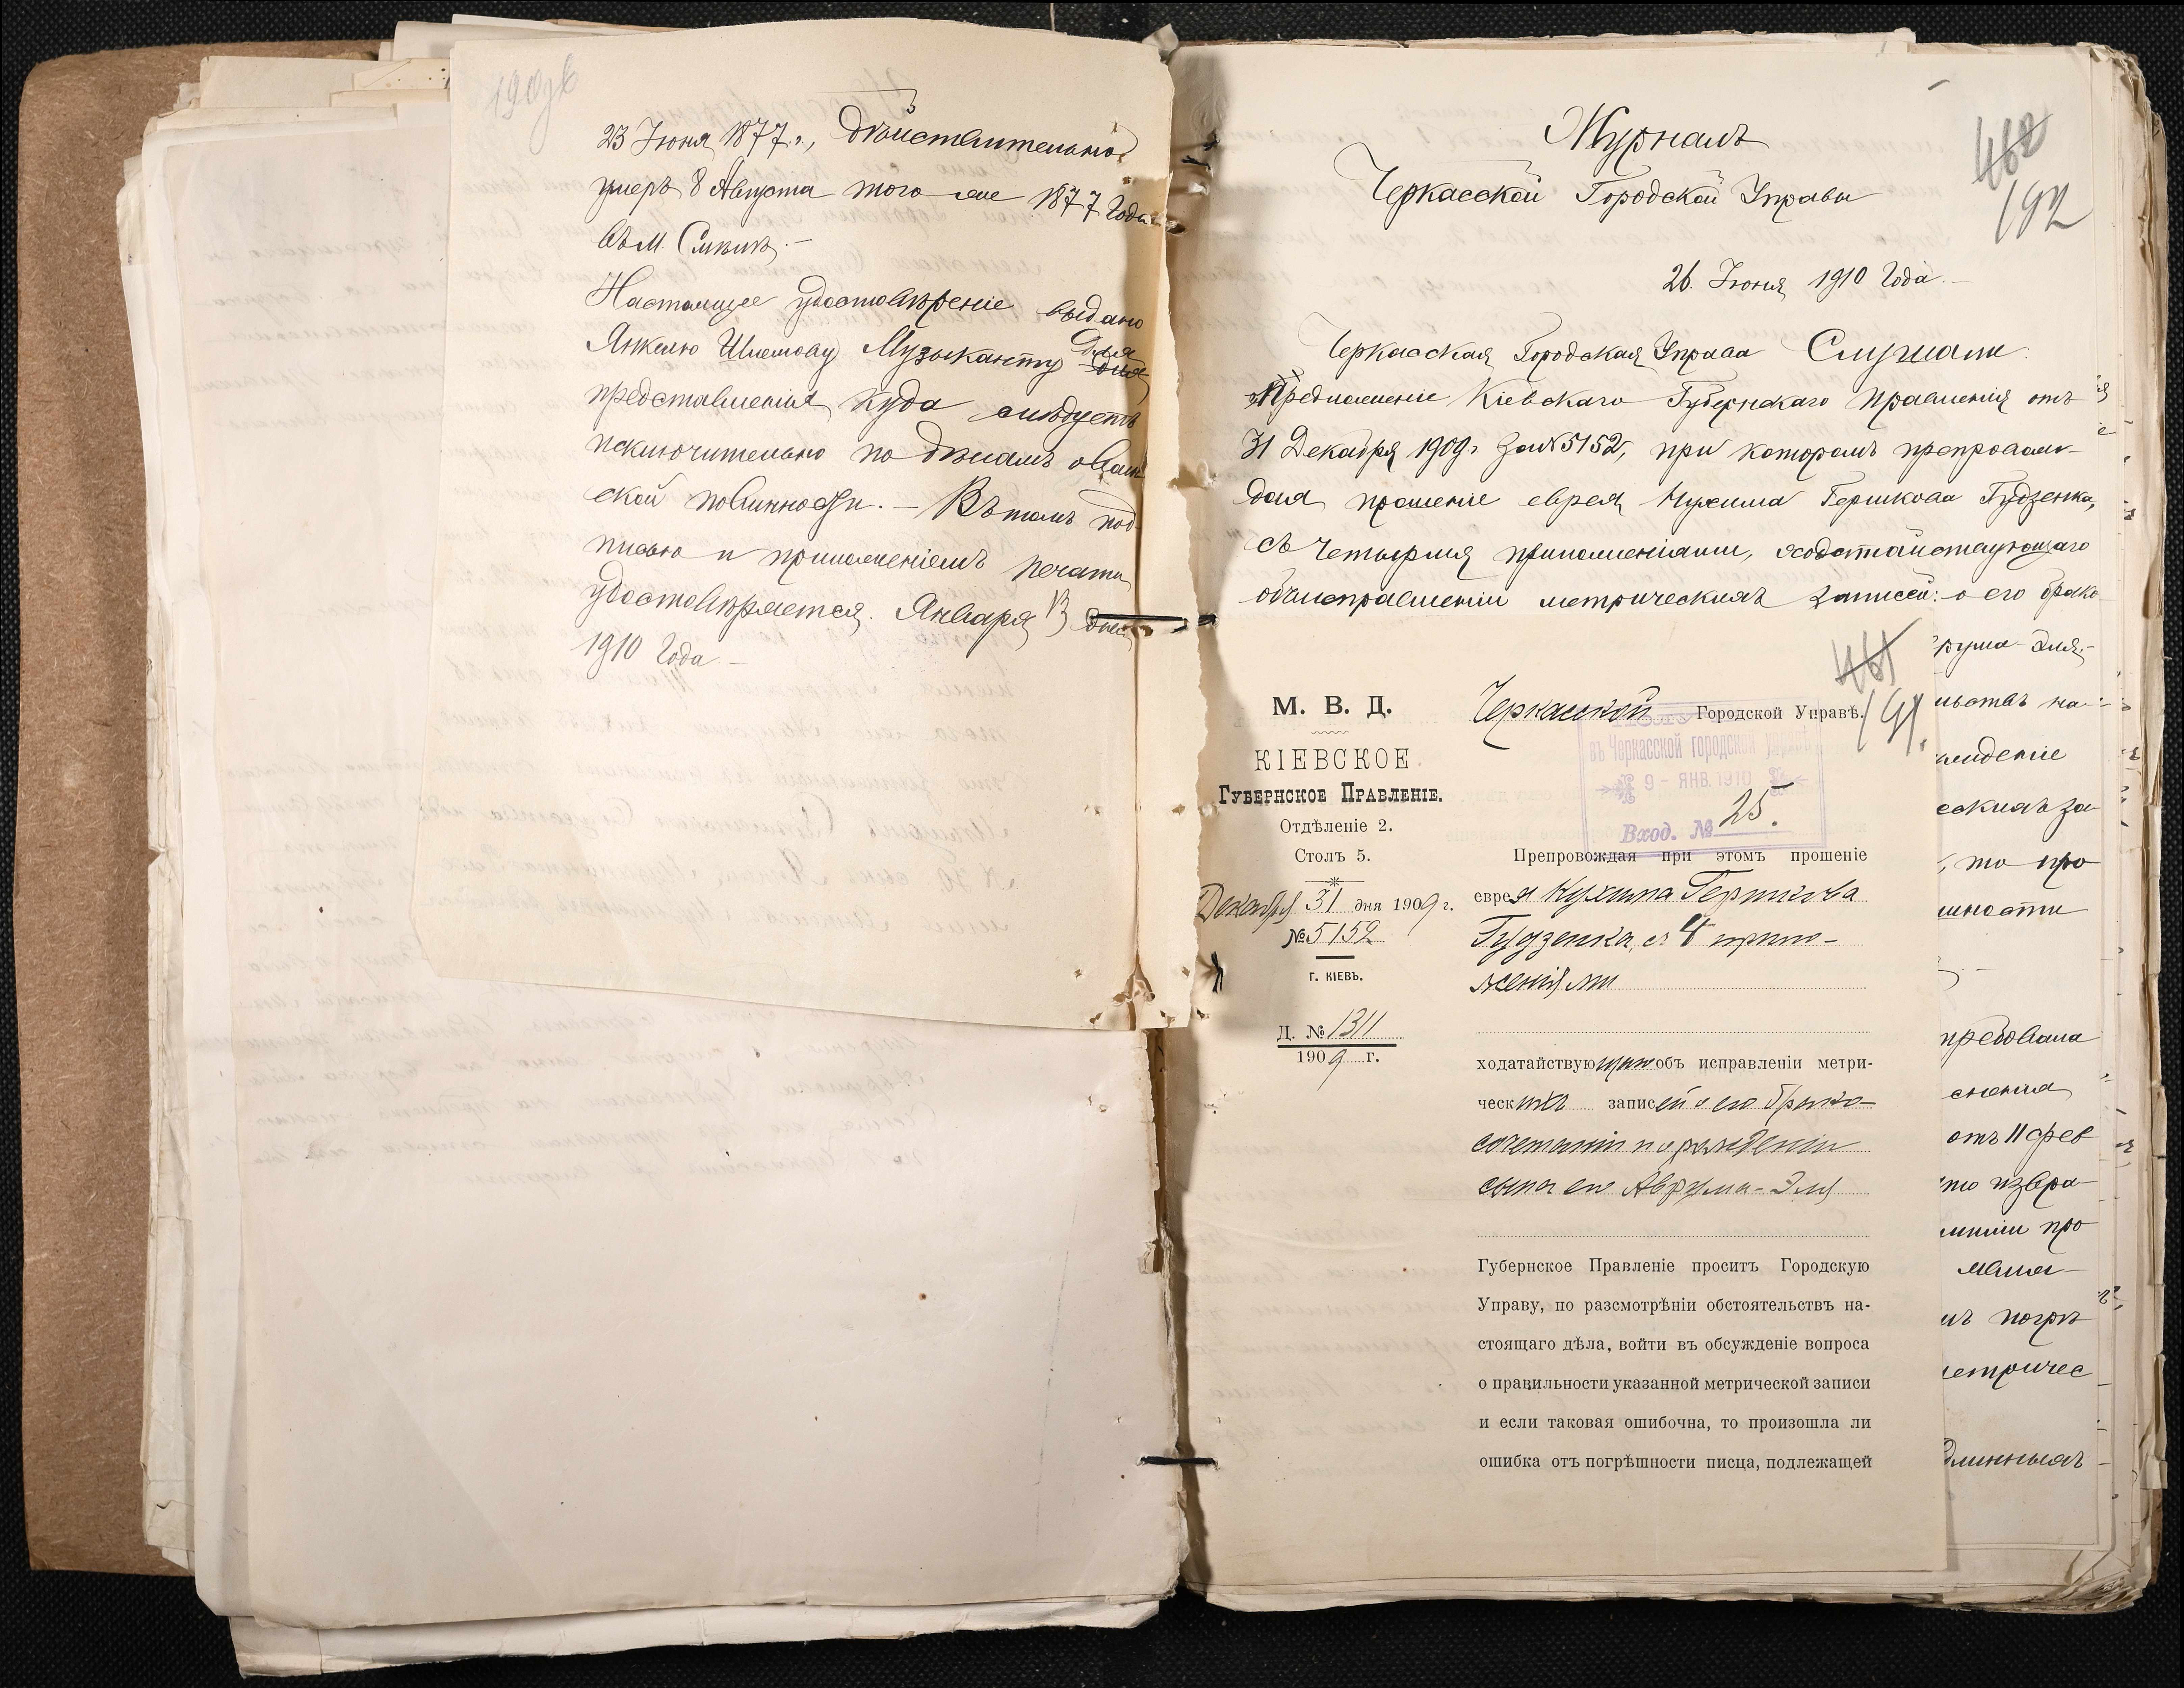 190 об
23 Іюня 1877 г., дѣйствительно
умеръ 8 Августа того же 1877 года
въ м. Смѣлѣ.-
Настоящее удостовѣреніе выдано
Янкелю Шлемову Музыканту для
представленія куда слѣдуетъ
исключительно по дѣламъ о воин
ской повинности. - Въ томъ под
писью и приложеніемъ печати
удостовѣряется. Января 13 дня
1910 года.-
Журналъ
Черкасской Городской Управы
462
192
26 Іюня 1910 года.-
Черкасская Городская Управа Слушали:
Предложеніе Кіевскаго Губернскаго Правленія отъ
31 Декабря 1909 г. за № 5152, при которомъ препровож-
дая прошеніе еврея Нухима Гершкова Гудзенка,
съ четырмя приложеніями, ходатайствующаго
объ исправленіи метрическихъ записей: о его брако
461
191.
М. В. Д.
КІЕВСКОЕ
Губернское Правленіе.
Отдѣленіе 2.
Столъ 5.
Декабря 31 дня 1909 г.
№ 5152
г. КІЕВЪ.
Д. № 1311
1909 г.
Черкасской Городской Управѣ.
въ Черкасской городской управѣ
9 - ЯНВ. 1910
Вход. № 25.
Препровождая при этомъ прошеніе
еврея Нухима Гершкова
Гудзенка, съ 4 прило-
женіями
ходатайствующаго объ исправленіи метри-
ческихъ записей о его брако-
сочетаніи и о рожденіи
сына его Аврума-Эля
Губернское Правленіе проситъ Городскую
Управу, по разсмотрѣніи обстоятельствъ на-
стоящаго дѣла, войти въ обсужденіе вопроса
о правильности указанной метрической записи
и если таковая ошибочна, то произошла ли
ошибка отъ погрѣшности писца, подлежащей
рума-Эля,-
льствъ на-
жденіе
ескихъ за
, то про
шности
требовала
отъ 11 фев
то извра
про
погрѣ
етричес
длинныхъ